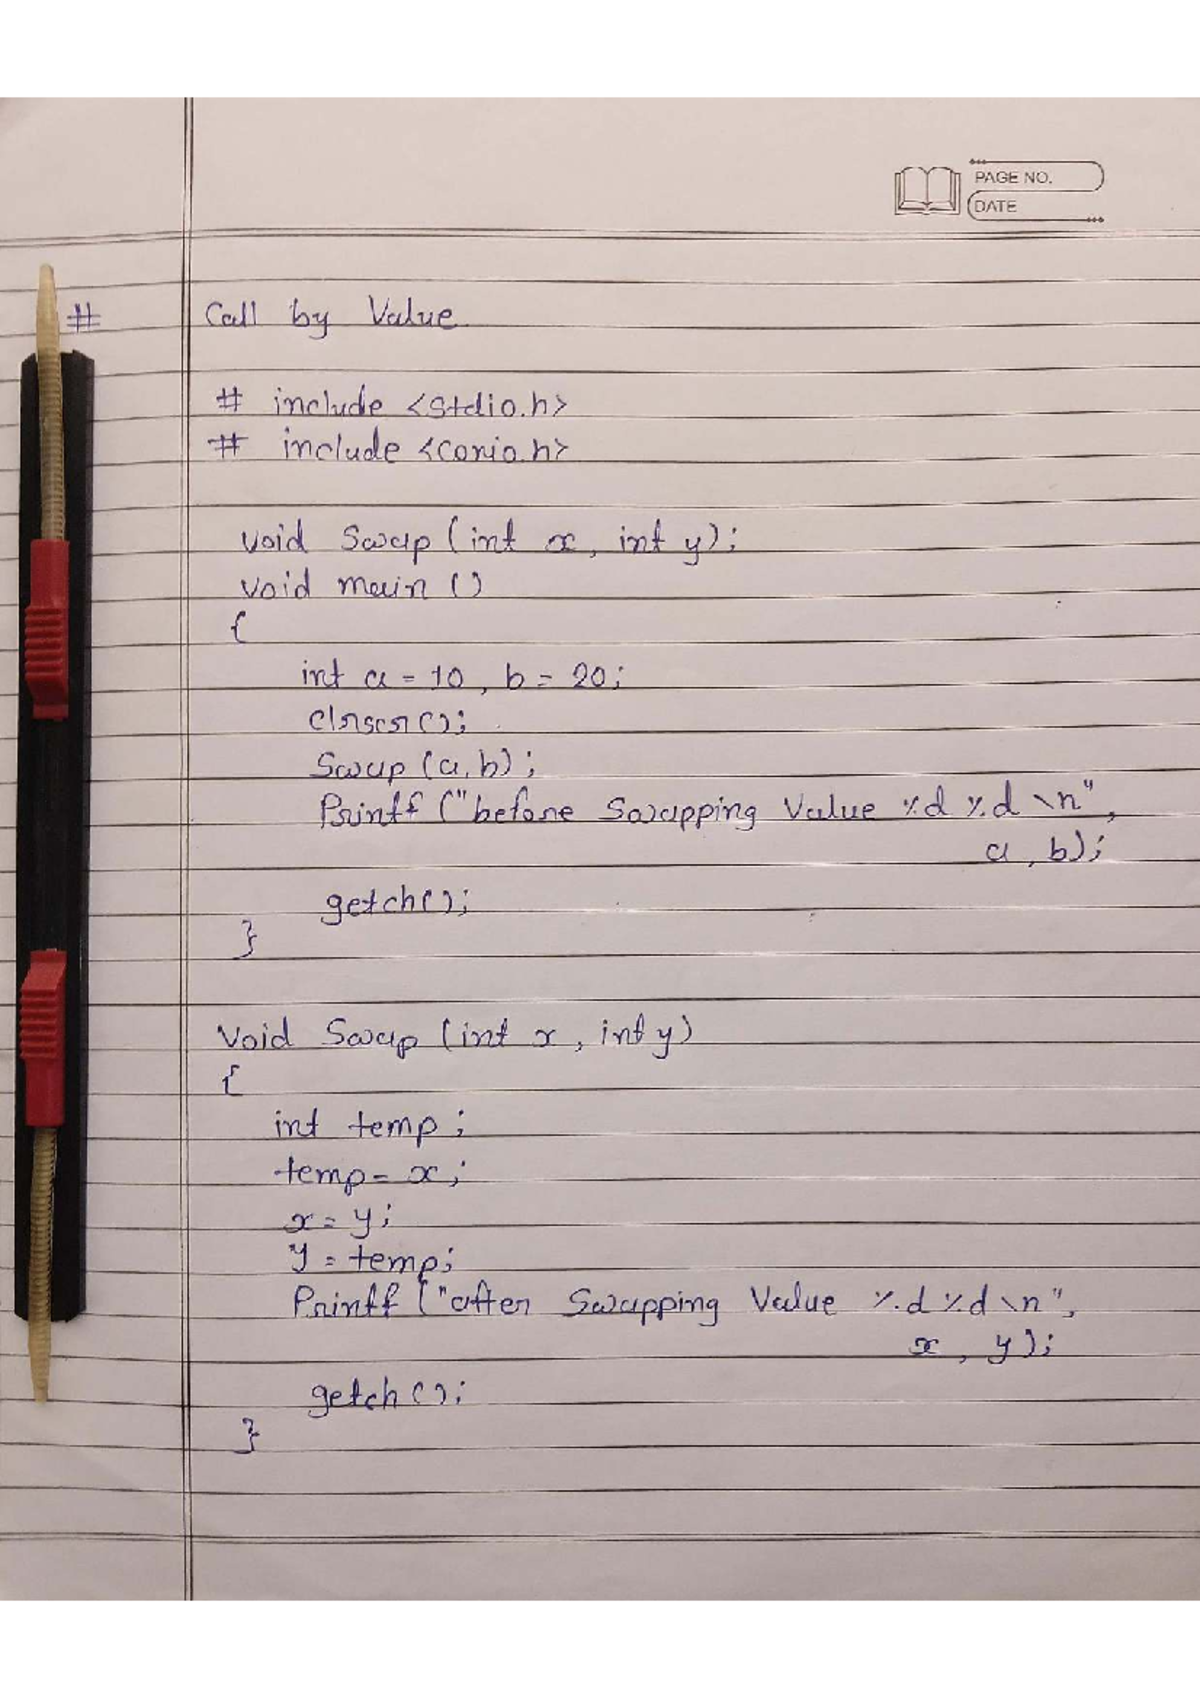 PAGE NO.
DATE
# Call by Value
# include <stdio.h>
# include <conio.h>
void Swap (int x, int y);
void main ()
{
int a = 10, b = 20;
clrscr();
Swap (a, b);
Printf ("before Swapping Value %d %d \n",
a, b);
getch();
}
Void Swap (int x, int y)
{
int temp;
temp = x;
x = y;
y = temp;
Printf ("after Swapping Value %d %d \n",
x, y);
getch();
}